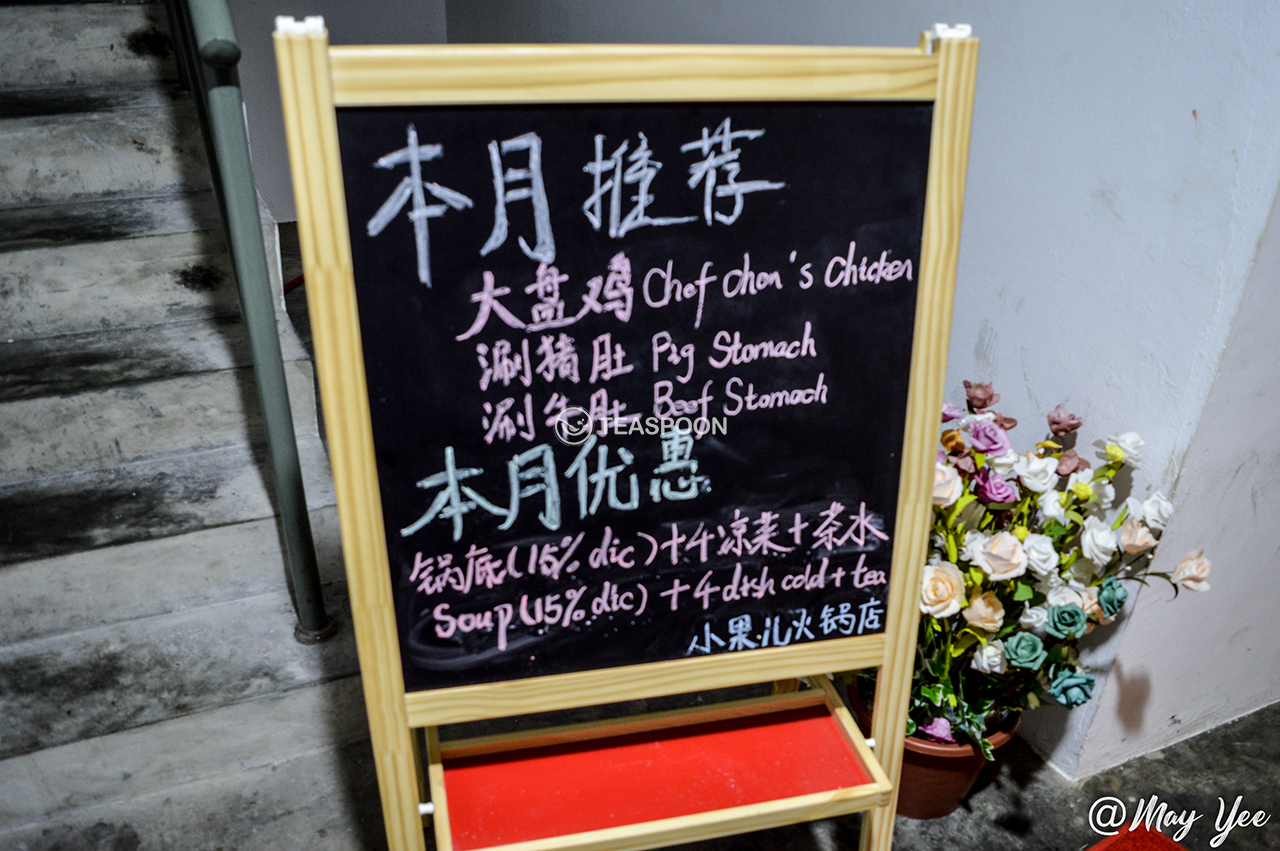 本月推荐
大盘鸡 Chef chen's Chicken
涮猪肚 Pig Stomach
涮牛肚 Beef Stomach
TEASPOON
本月优惠
锅底(15% dic)+4凉菜+茶水
Soup(15% dic)+4 dish cold + tea
小果儿火锅店
@May Yee